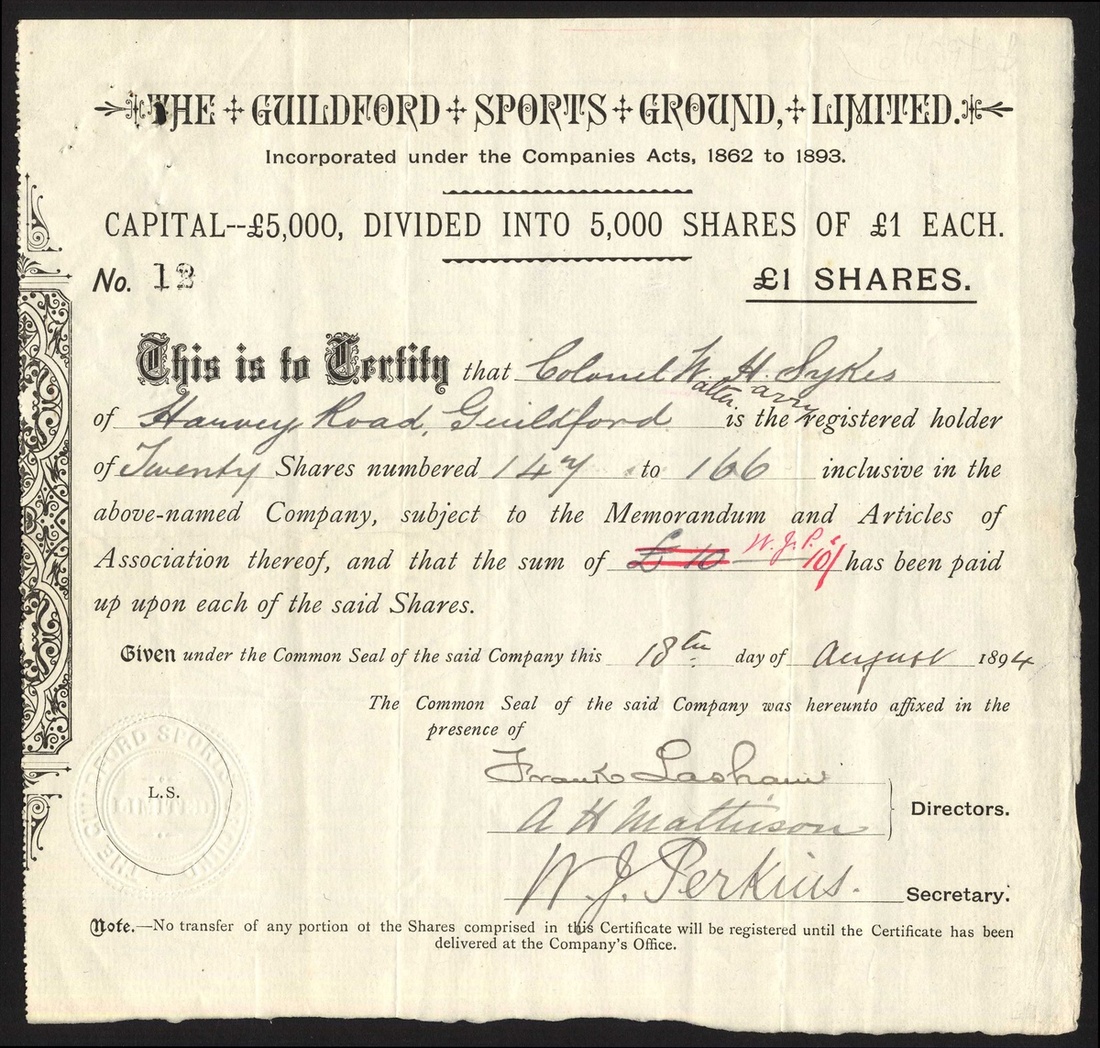 THE GUILDFORD SPORTS GROUND, LIMITED.
Incorporated under the Companies Acts, 1862 to 1893.
CAPITAL--£5,000, DIVIDED INTO 5,000 SHARES OF £1 EACH.
No. 12 £1 SHARES.
This is to Certify that Colonel W. H. Sykes
alter arry
of Harvey Road, Guildford is the registered holder
of Twenty Shares numbered 147 to 166 inclusive in the
above-named Company, subject to the Memorandum and Articles of
W. J. P.
Association thereof, and that the sum of £ 10 10/ has been paid
up upon each of the said Shares.
Given under the Common Seal of the said Company this 18th day of August 1894
The Common Seal of the said Company was hereunto affixed in the
presence of
Frank Lasham
A H Mathison
Directors.
W. J. Perkins. Secretary.
L.S.
LIMITED
Note.—No transfer of any portion of the Shares comprised in this Certificate will be registered until the Certificate has been
delivered at the Company's Office.